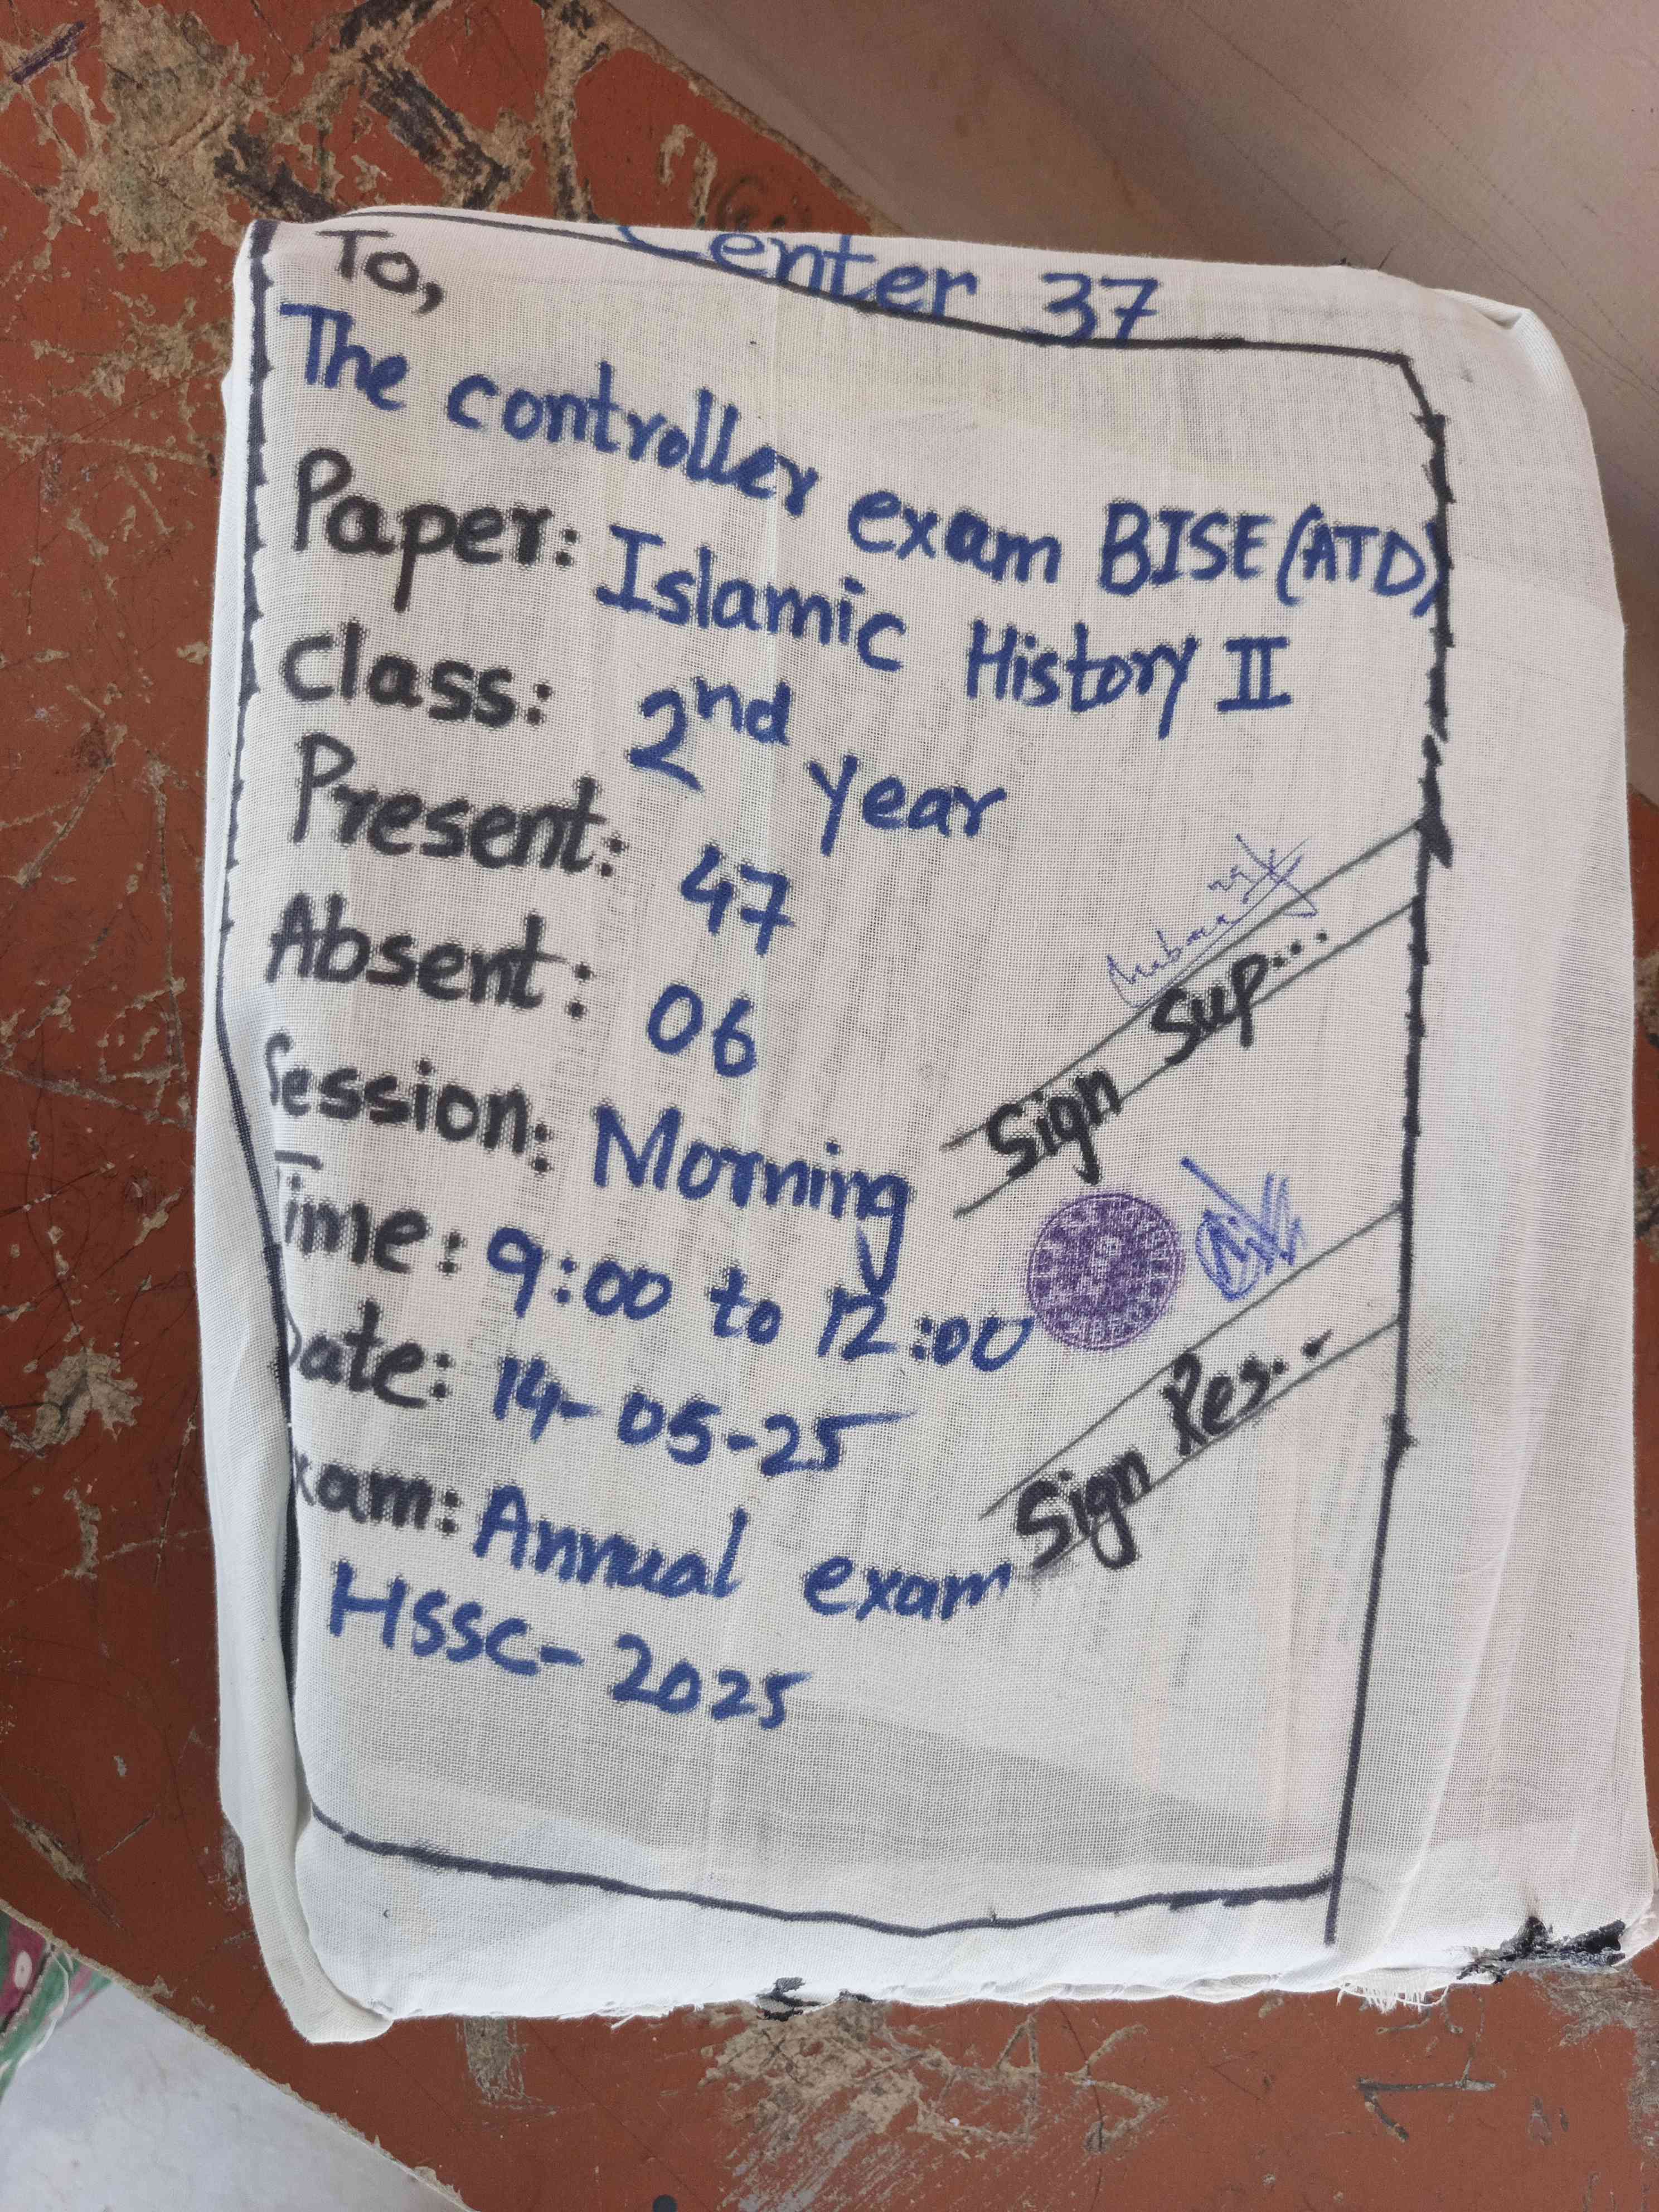 Center 37
To,
The controller exam BISE (ATD)
Paper: Islamic History II
Class: 2nd year
Present: 47
Absent: 06
Sign Sup...
Session: Morning
Time: 9:00 to 12:00
Date: 14-05-25
Sign Res...
Exam: Annual exam
HSSC-2025